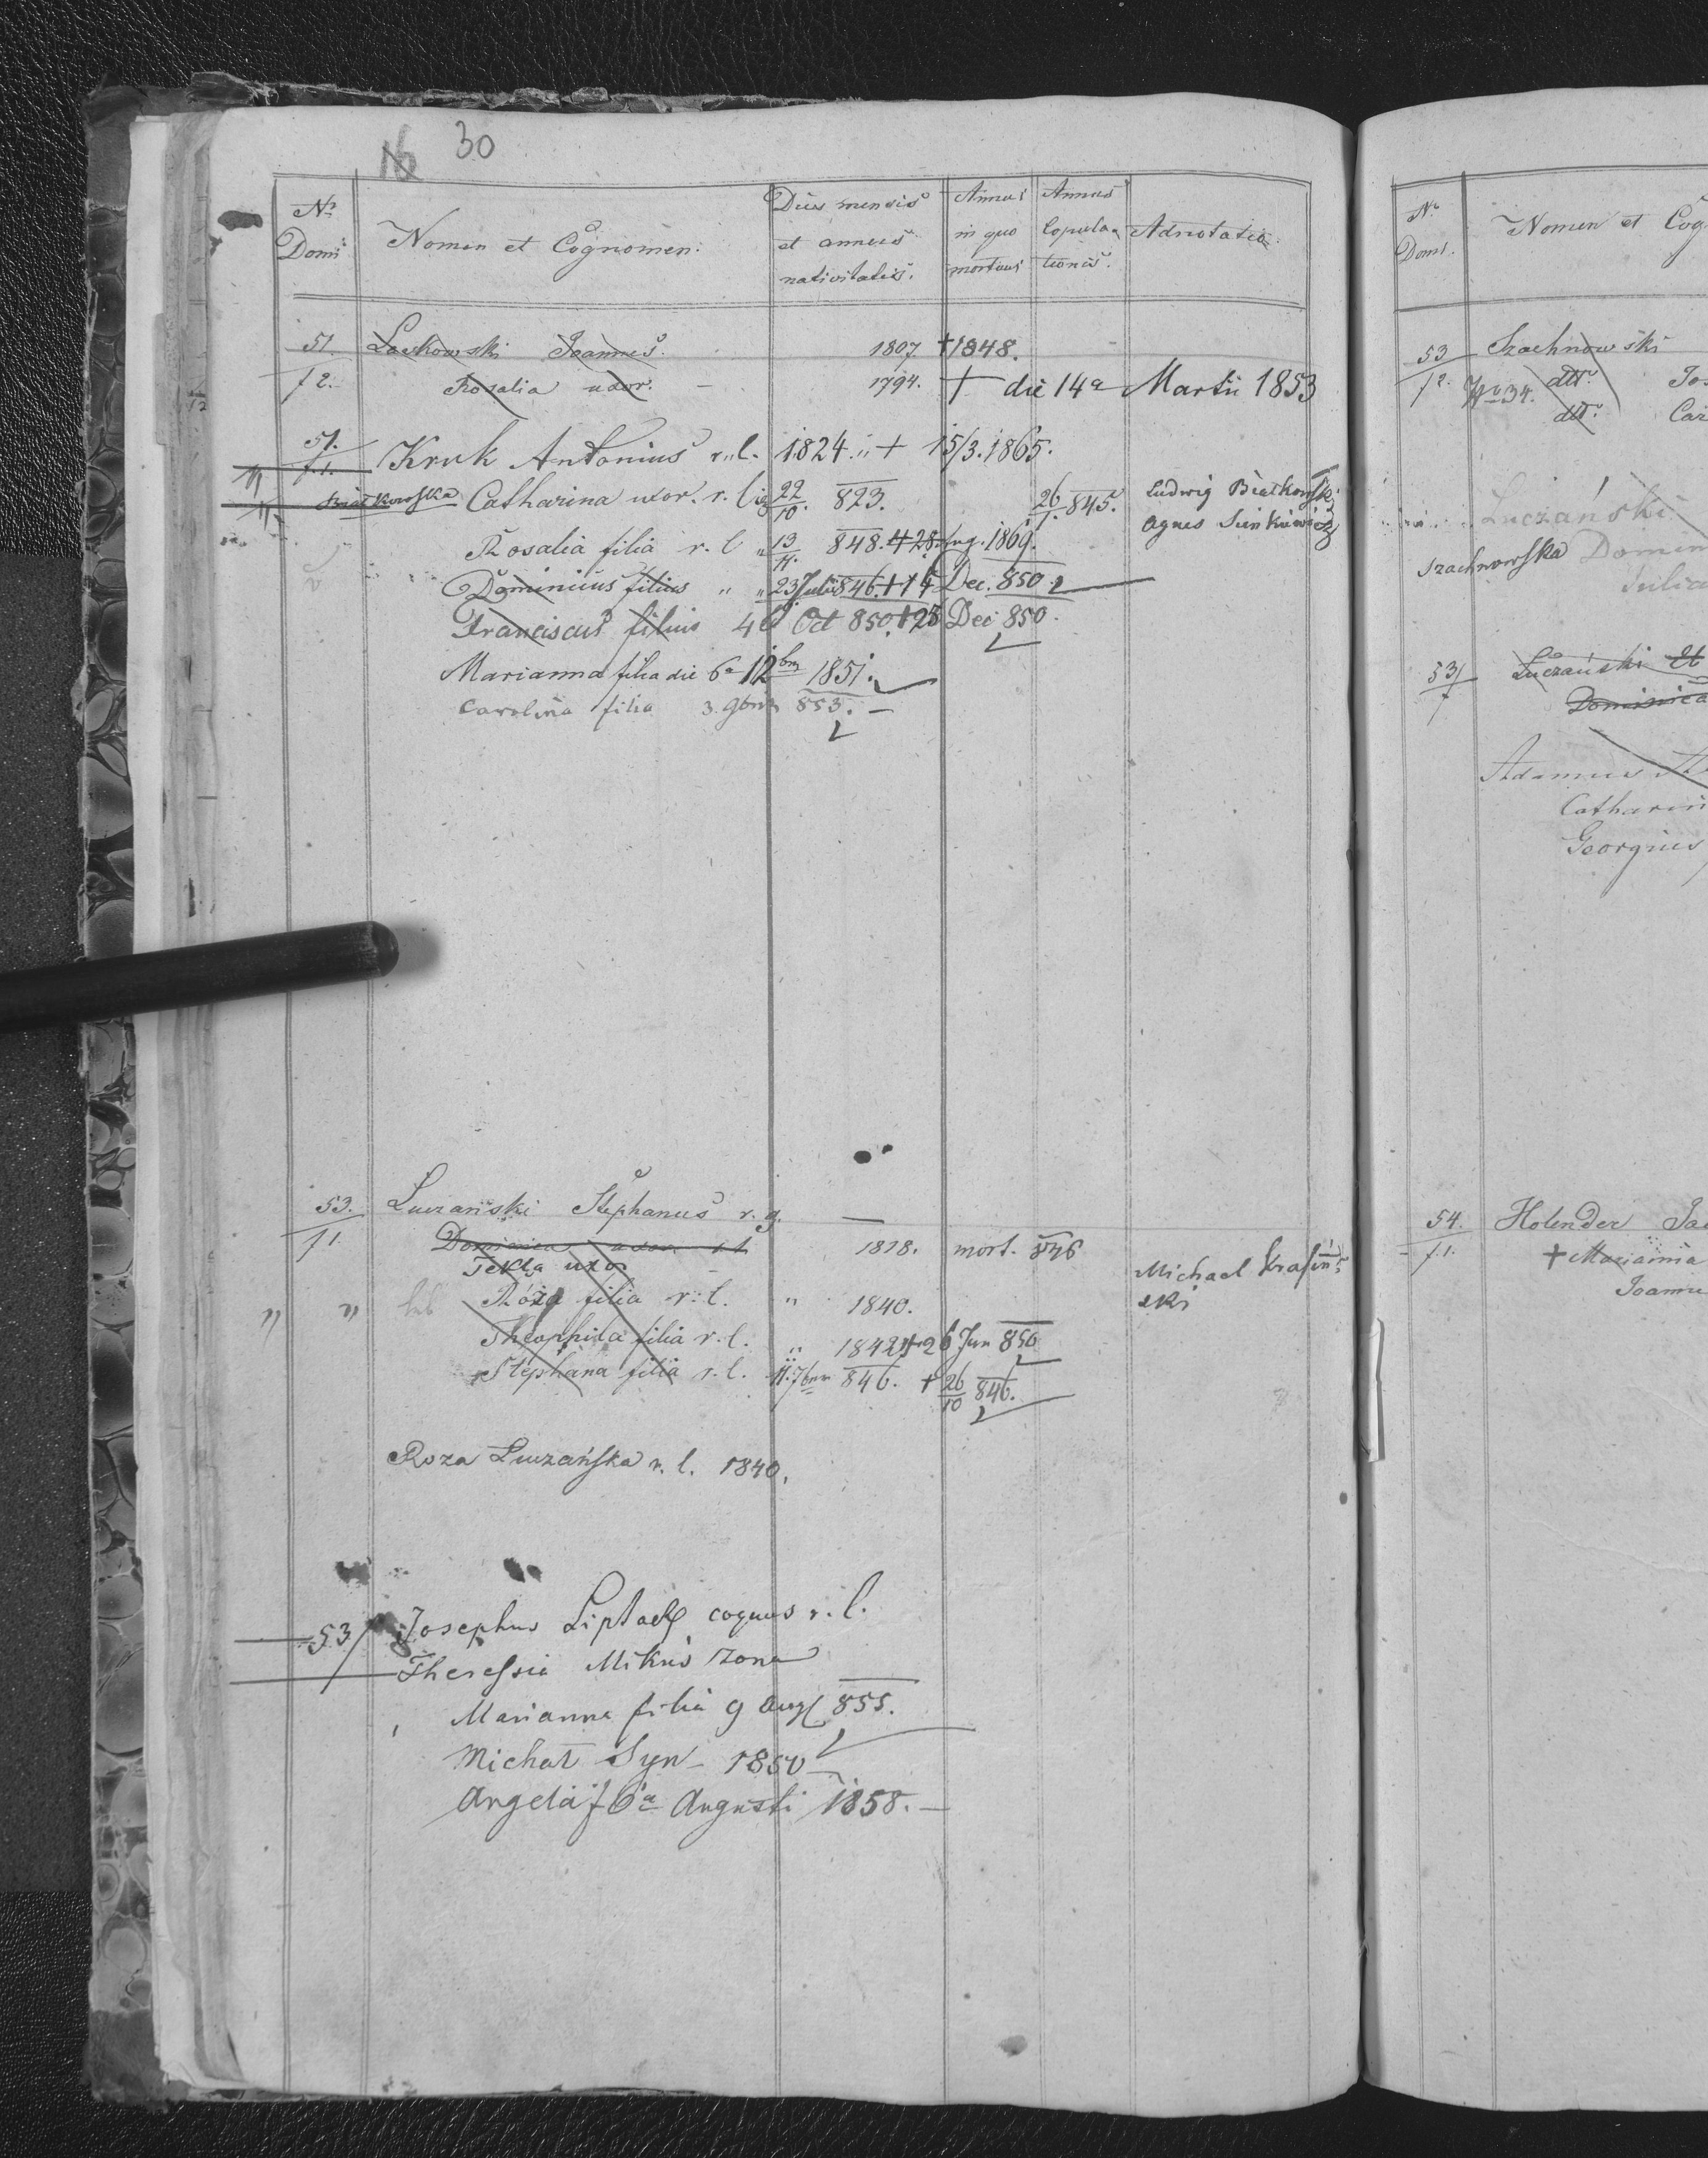 16 30
No Domi
Nomen et Cognomen
Dies mensis et annus nativitatis.
Annus in quo mortuus
Annus Copulationis.
Adnotatio.
51. Laskowski Joannes. 1807 +1848.
f 2. Rosalia uxor. – 1794. + die 14a Martii 1853
51. f. 1. Kruk Antonius r. l. 1824. + 15/3. 1865.
Białkowska Catharina uxor. r. l. 22/10. 823. 26/1. 845. Ludwig Białkowski
Agnes Sienkiewicz
Rosalia filia r. l. " 13/11. 848. + 28. Aug. 1869.
Dominicus filius " " 23 Julii 846. + 14 Dec. 850
Franciscus filius 4 Oct 850 + 28 Dec 850.
Marianna filia die 6a 12bris 1851.
Carolina filia 3. 9bris 853. –
53. Luczański Stephanus r. g. —
f 1. Dominica uxor r. l. 1818. mort. 846
Tekla uxor
Michael Krasiń
ski
" " Róża filia r. l. " 1840.
Theophila filia r. l. " 1842 + 26 Jun 856
Stephana filia r. l. 11. 7bris 846. + 26/10 846.
Roza Luczańska r. l. 1840.
53/ Josephus Liptack coquus r. l.
Theressia Mikuś zona
Marianna filia 9 Aug 855.
Michał Syn – 1850
Angela f 6a Augusti 1858. –
No Domi.
Nomen et Cog
53 Szachnowski
f 2. No 34. dtt. Jos
dtt. Car
Luczański
Szachnowska Domin
Julia
53/ Luczański
Dominica
Adamus
Catharin
Georgius
54. Holender Ja
f. 1. + Marianna
Joannes